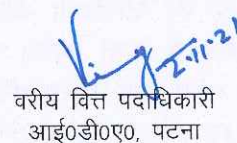 2.11.21
वरीय वित्त पदाधिकारी
आई०डी०ए०, पटना